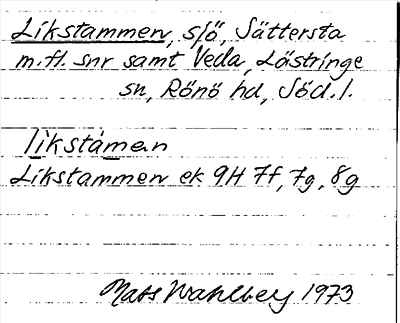 Likstammen, sjö, Sättersta
m.fl. snr samt Veda, Lästringe
sn, Rönö hd, Söd. l.
likstàmen
Likstammen ek 9H 7f, 7g, 8g
Mats Wahlberg 1973